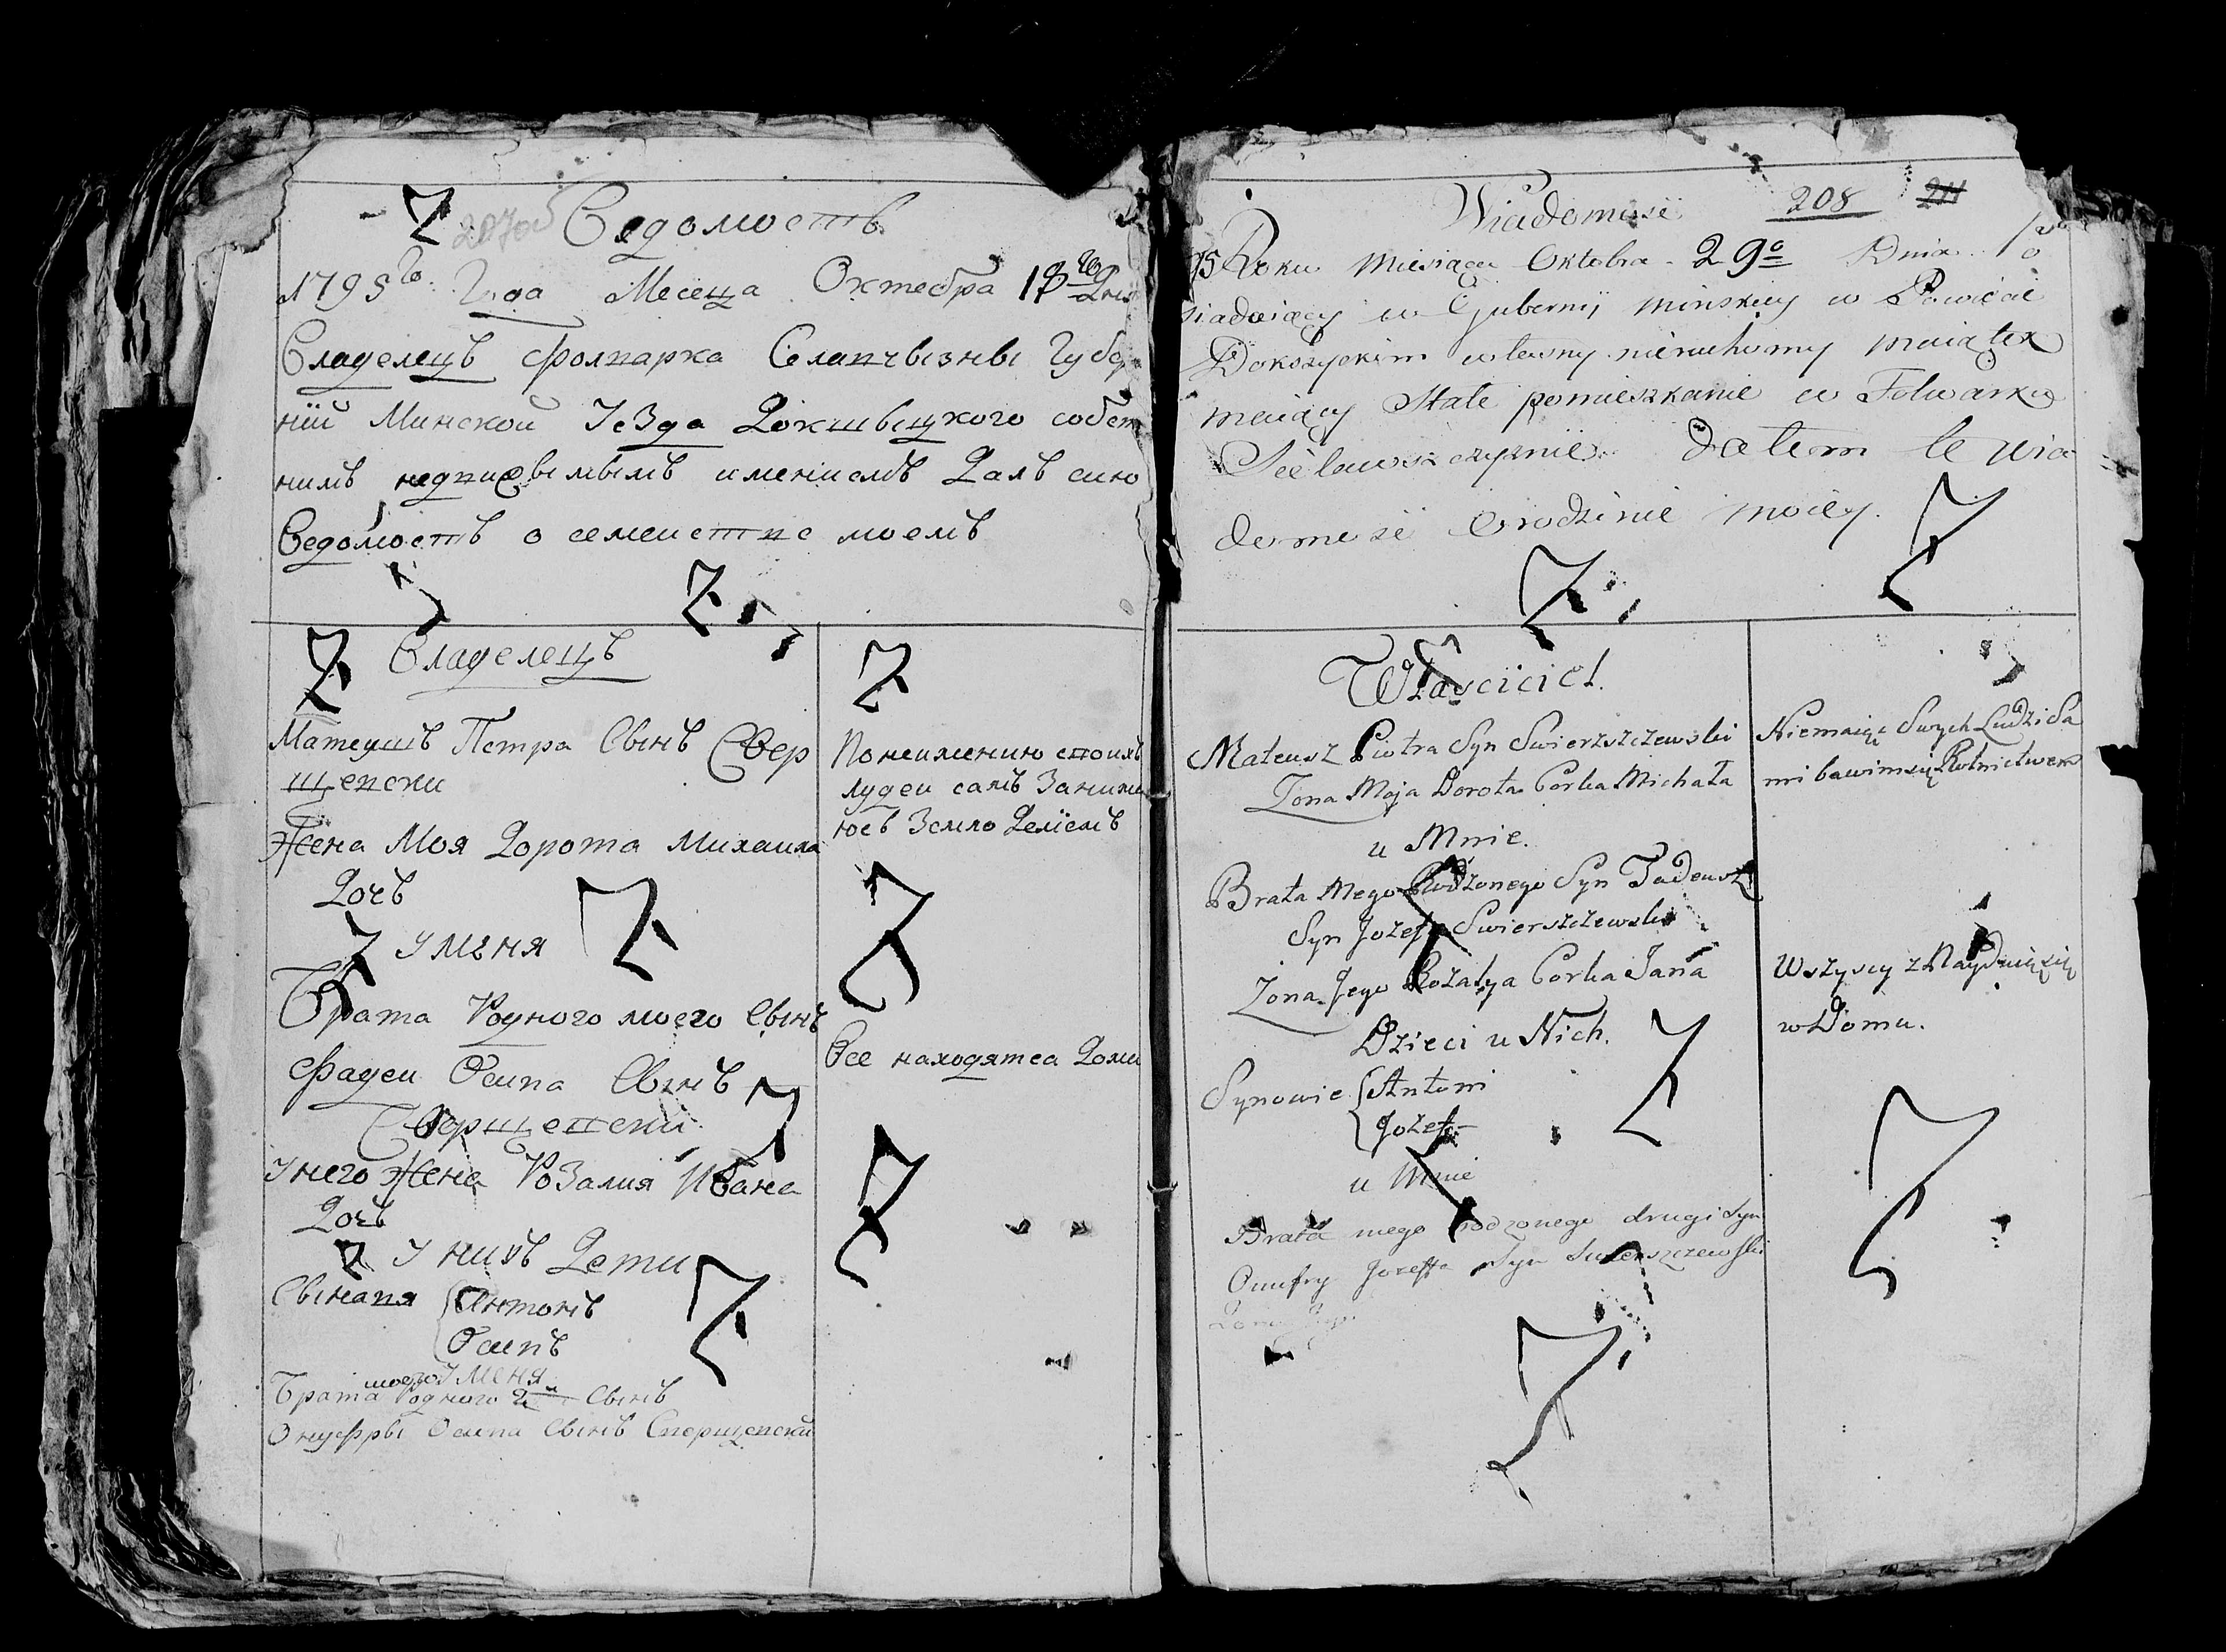 207об
Ведомость
1795го Года Месеца Октебра 18го Дня
Владелецъ фолварка Селавчызны Губер
нїи Минской Уезда Докшыцкого собст
нимъ недвижымымъ имениемъ Далъ сию
Ведомость о семеистве моемъ
Владелецъ
Матеушъ Петра Сынъ Свер
щевски
Жена Моя Дорота Михаила
Дочъ
У меня
Брата Родного моего Сынъ
Фадеи Осипа Сынъ
Сверщевски
У него Жена Розалия Ивана
Дочъ
У нихъ Дети
Сыновя Антонъ
Осипъ
У меня
Брата моего Родного 2й Сынъ
Онуфры Осипа Сынъ Сверщевски
По неимению своихъ
лудеи самъ Занима
юсъ Земло Делїемъ
Все находятса Дома
Wiadomosć 208 211
95 Roku Miesiąca Oktobra 29o Dnia
siadaiący w Gubernij Minskiey w Powiecie
Dokszyckim własny nieruchomy maiątek
maiący Stałe pomieszkanie w Folwarku
Siеławszczyznie datem te wia
domosć o rodzinie moiey.
Własciciel.
Mateusz Piotra Syn Swierzszczewski
Zona Moja Dorota Corka Michała
u Mnie.
Brata Mego Rodzonego Syn Tadeusz
Syn Jozefa Swierszczewski
Zona Jego Rozalya Corka Jana
Dzieci u Nich.
Synowie Antoni
Jozef
u Mnie
Brata mego rodzonego drugi Syn
Onufry Jozefa Syn Swierszczewski
Zona Jego
Niemaiąc Swych Ludzi Sa
mi bawimsię Rolnictwem
Wszyscy z Nayduią się
w Domu.